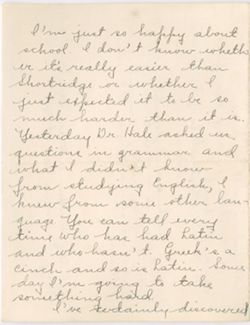 I'm just so happy about
school. I don't know wheth
er it's really easier than
Shortridge or whether I
just expected it to be so
much harder than it is.
Yesterday Dr. Hale asked us
questions in grammar and
what I didn't know
from studying English, I
knew from some other lan-
guage. You can tell every
time who has had Latin
and who hasn't. Greek's a
cinch and so is Latin. Some
day I'm going to take
something hard.
I've certainly discovered